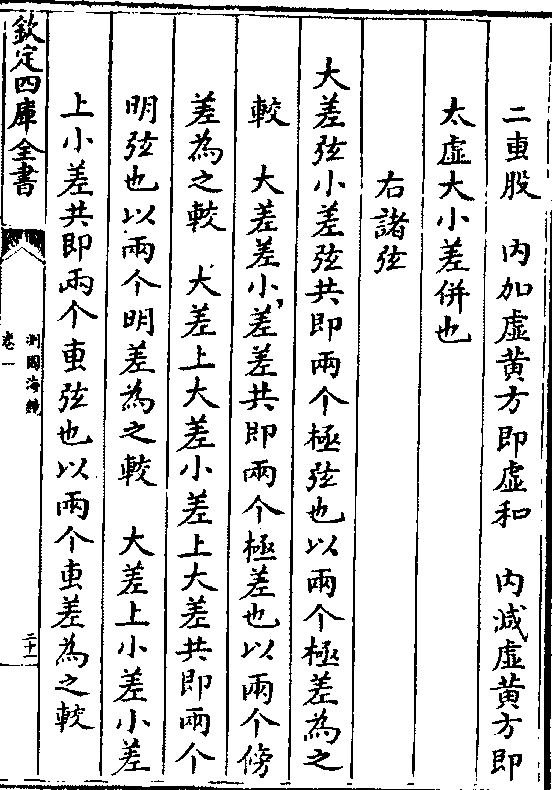 二叀股　内加虚黄方即虚和　内減虚黄方即
太虚大小差併也
右諸弦
大差弦小差弦共即兩个極弦也以兩个極差為之
較　大差差小差差共即兩个極差也以兩个傍
差為之較　大差上大差小差上大差共即兩个
明弦也以兩个明差為之較　大差上小差小差
上小差共即兩个叀弦也以兩个叀差為之較
欽定四庫全書
測圓海鏡
卷一
二十一